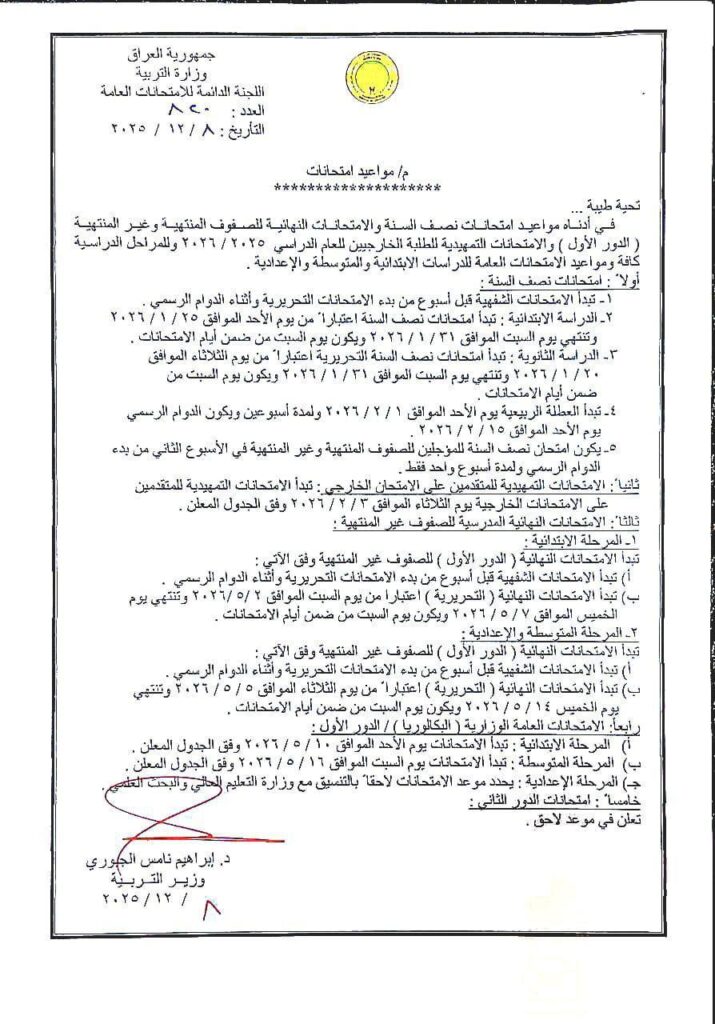 جمهورية العراق
وزارة التربية
اللجنة الدائمة للامتحانات العامة
العدد : ٨٢٠
التأريخ : ٨ / ١٢ / ٢٠٢٥
م/ مواعيد امتحانات
********************
تحية طيبة ...
في أدناه مواعيد امتحانات نصف السنة والامتحانات النهائية للصفوف المنتهية وغير المنتهية
( الدور الأول ) والامتحانات التمهيدية للطلبة الخارجيين للعام الدراسي ٢٠٢٥ / ٢٠٢٦ وللمراحل الدراسية
كافة ومواعيد الامتحانات العامة للدراسات الابتدائية والمتوسطة والإعدادية .
أولاً : امتحانات نصف السنة :
١- تبدأ الامتحانات الشفهية قبل أسبوع من بدء الامتحانات التحريرية وأثناء الدوام الرسمي .
٢- الدراسة الابتدائية : تبدأ امتحانات نصف السنة اعتباراً من يوم الأحد الموافق ٢٥ / ١ / ٢٠٢٦
وتنتهي يوم السبت الموافق ٣١ / ١ / ٢٠٢٦ ويكون يوم السبت من ضمن أيام الامتحانات .
٣- الدراسة الثانوية : تبدأ امتحانات نصف السنة التحريرية اعتباراً من يوم الثلاثاء الموافق
٢٠ / ١ / ٢٠٢٦ وتنتهي يوم السبت الموافق ٣١ / ١ / ٢٠٢٦ ويكون يوم السبت من
ضمن أيام الامتحانات .
٤- تبدأ العطلة الربيعية يوم الأحد الموافق ١ / ٢ / ٢٠٢٦ ولمدة أسبوعين ويكون الدوام الرسمي
يوم الأحد الموافق ١٥ / ٢ / ٢٠٢٦ .
٥- يكون امتحان نصف السنة للمؤجلين للصفوف المنتهية وغير المنتهية في الأسبوع الثاني من بدء
الدوام الرسمي ولمدة أسبوع واحد فقط .
ثانياً: الامتحانات التمهيدية للمتقدمين على الامتحان الخارجي : تبدأ الامتحانات التمهيدية للمتقدمين
على الامتحانات الخارجية يوم الثلاثاء الموافق ٣ / ٢ / ٢٠٢٦ وفق الجدول المعلن .
ثالثاً: الامتحانات النهائية المدرسية للصفوف غير المنتهية :
١- المرحلة الابتدائية :
تبدأ الامتحانات النهائية ( الدور الأول ) للصفوف غير المنتهية وفق الآتي :
أ) تبدأ الامتحانات الشفهية قبل أسبوع من بدء الامتحانات التحريرية وأثناء الدوام الرسمي .
ب) تبدأ الامتحانات النهائية ( التحريرية ) اعتباراً من يوم السبت الموافق ٢ / ٥ /٢٠٢٦ وتنتهي يوم
الخميس الموافق ٧ / ٥ / ٢٠٢٦ ويكون يوم السبت من ضمن أيام الامتحانات .
٢- المرحلة المتوسطة والإعدادية :
تبدأ الامتحانات النهائية ( الدور الأول ) للصفوف غير المنتهية وفق الآتي :
أ) تبدأ الامتحانات الشفهية قبل أسبوع من بدء الامتحانات التحريرية وأثناء الدوام الرسمي .
ب) تبدأ الامتحانات النهائية ( التحريرية ) اعتباراً من يوم الثلاثاء الموافق ٥ / ٥ / ٢٠٢٦ وتنتهي
يوم الخميس ١٤ / ٥ / ٢٠٢٦ ويكون يوم السبت من ضمن أيام الامتحانات .
رابعاً: الامتحانات العامة الوزارية ( البكالوريا ) / الدور الأول :
أ) المرحلة الابتدائية : تبدأ الامتحانات يوم الأحد الموافق ١٠ / ٥ / ٢٠٢٦ وفق الجدول المعلن .
ب) المرحلة المتوسطة : تبدأ الامتحانات يوم السبت الموافق ١٦ / ٥ / ٢٠٢٦ وفق الجدول المعلن .
جـ) المرحلة الإعدادية : يحدد موعد الامتحانات لاحقاً بالتنسيق مع وزارة التعليم العالي والبحث العلمي .
خامساً : امتحانات الدور الثاني :
تعلن في موعد لاحق .
د. إبراهيم نامس الجبوري
وزير التربية
٨ / ١٢ / ٢٠٢٥